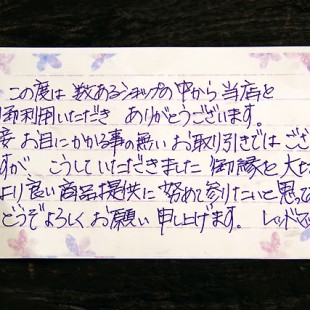 この度は 数あるショップの中から 当店を
御利用いただき ありがとうございます。
お目にかかる事の無い お取り引きでは ござ
すが、こうしていただきました 御縁を 大切
より良い商品提供に 努めて参りたいと思って
どうぞよろしく お願い 申し上げます。 レッド